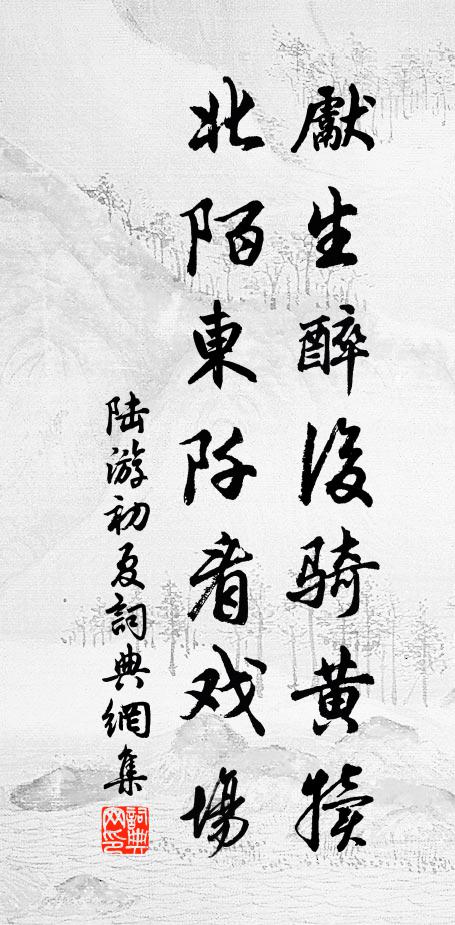 獻生醉後騎黃犢
北陌東阡看戏場
陆游初夏詞典網集
詞典
网印